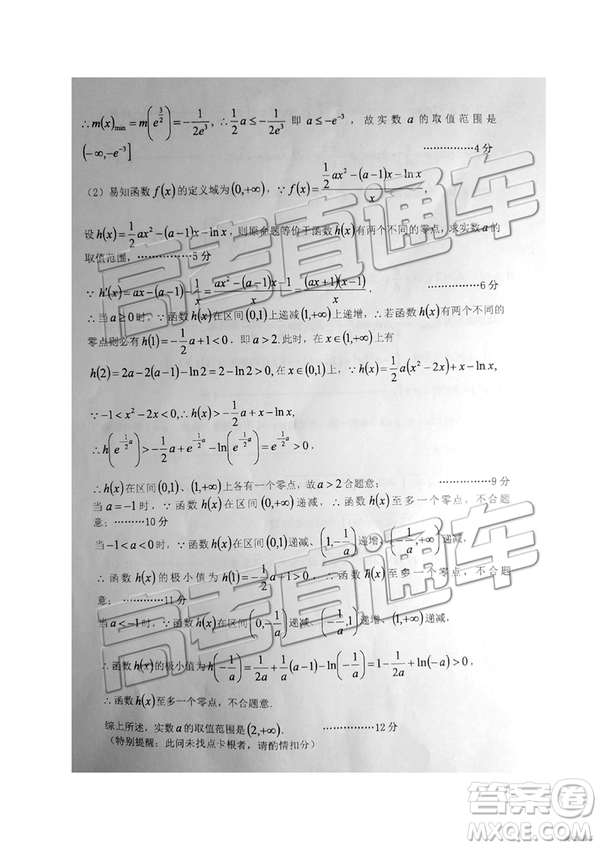 ∴m(x)min = m(e^(3/2)) = -1/(2e³), ∴ 1/2 a ≤ -1/(2e³) 即 a ≤ -e⁻³ , 故实数 a 的取值范围是
(-∞,-e⁻³] ……………4 分
(2) 易知函数 f(x) 的定义域为 (0,+∞), ∵ f(x) = (1/2 ax² - (a-1)x - ln x)/x ,
设 h(x) = 1/2 ax² - (a-1)x - ln x, 则原命题等价于函数 h(x) 有两个不同的零点，求实数 a 的
取值范围，…………5 分
∵ h'(x) = ax - (a-1) - 1/x = (ax² - (a-1)x - 1)/x = (ax+1)(x-1)/x . ……………6 分
∴当 a ≥ 0 时, ∵函数 h(x) 在区间 (0,1) 上递减 (1,+∞) 上递增, ∴若函数 h(x) 有两个不同的
零点则必有 h(1) = -1/2 a + 1 < 0, 即 a > 2. 此时, 在 x ∈ (1,+∞) 上有
h(2) = 2a - 2(a-1) - ln 2 = 2 - ln 2 > 0, 在 x ∈ (0,1) 上, h(x) = 1/2 a(x² - 2x) + x - ln x,
∵ -1 < x² - 2x < 0, ∴ h(x) > -1/2 a + x - ln x,
∴ h(e^(-1/2 a)) > -1/2 a + e^(-1/2 a) + 1/2 a > 0 ,
∴函数 h(x) 在区间 (0,1), (1,+∞) 上各有一个零点，故 a > 2 合题意； ……………9 分
当 a = -1 时, ∵ 函数 h(x) 在区间 (0,+∞) 递减, ∴ 函数 h(x) 至多一个零点，不合题
意；………10 分
当 -1 < a < 0 时, ∵ 函数 h(x) 在区间 (0,1) 递减、(1,-1/a) 递增、(-1/a,+∞) 递减,
∴函数 h(x) 的极小值为 h(1) = -1/2 a + 1 > 0, ∴ 函数 h(x) 至多一个零点, 不合题
意； …………11 分
当 a < -1 时, ∵ 函数 h(x) 在区间 (0,-1/a) 递减、(-1/a,1) 递增、(1,+∞) 递减,
∴ 函数 h(x) 的极小值为 h(-1/a) = 1/(2a) + 1/a (a-1) - ln(-1/a) = 1 - 1/(2a) + ln(-a) > 0 ,
∴函数 h(x) 至多一个零点，不合题意.
综上所述，实数 a 的取值范围是 (2,+∞). ……………12 分
(特别提醒：此问未找点卡根者，请酌情扣分)
高考直通车
答案圈
MXQE.COM